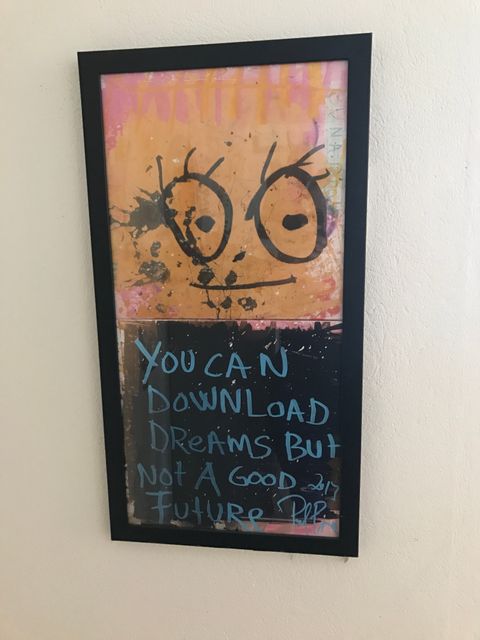 YOU CAN
DOWNLOAD
DREAMS BUT
NOT A GOOD 2017
FUTURE